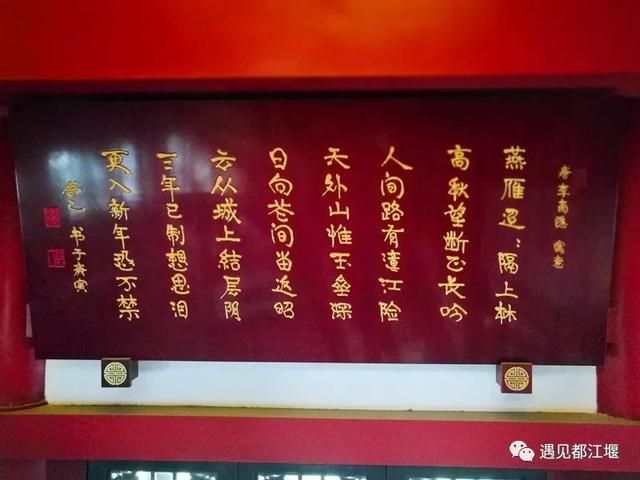 唐 李商隐
燕雁迢々隔上林
高秋望断正长吟
人间路有潼江险
天外山惟玉垒深
日向花间留返照
云从城上結层阴
三年已制想思泪
更入新年恐不禁
书于庚寅
遇见都江堰